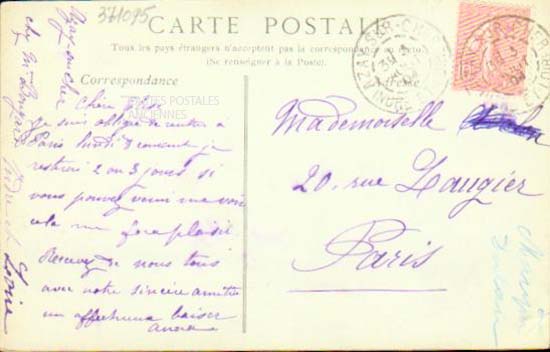 371095
CARTE POSTALE
Tous les pays étrangers n'acceptent pas la correspondance au recto
(Se renseigner à la Poste).
Correspondance
Adresse
CARTES POSTALES
ANCIENNES
Chère
Je suis obligée de rentrer à
Paris lundi 3 courant je
resterai 2 ou 3 jours si
vous pouvez venir me voir
cela me fera plaisir
Recevez de nous tous
avec notre sincère amitié
un affectueux baiser
Azay sur Cher
chez Mme
Indre et Loire
Mademoiselle
20, rue Laugier
Paris
AZAY-SUR-CHER